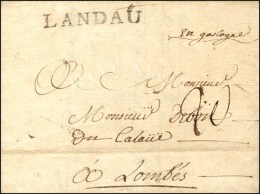 LANDAU
en gascogne
A Monsieur
Monsieur
20
Du Calaüe
à Lombés